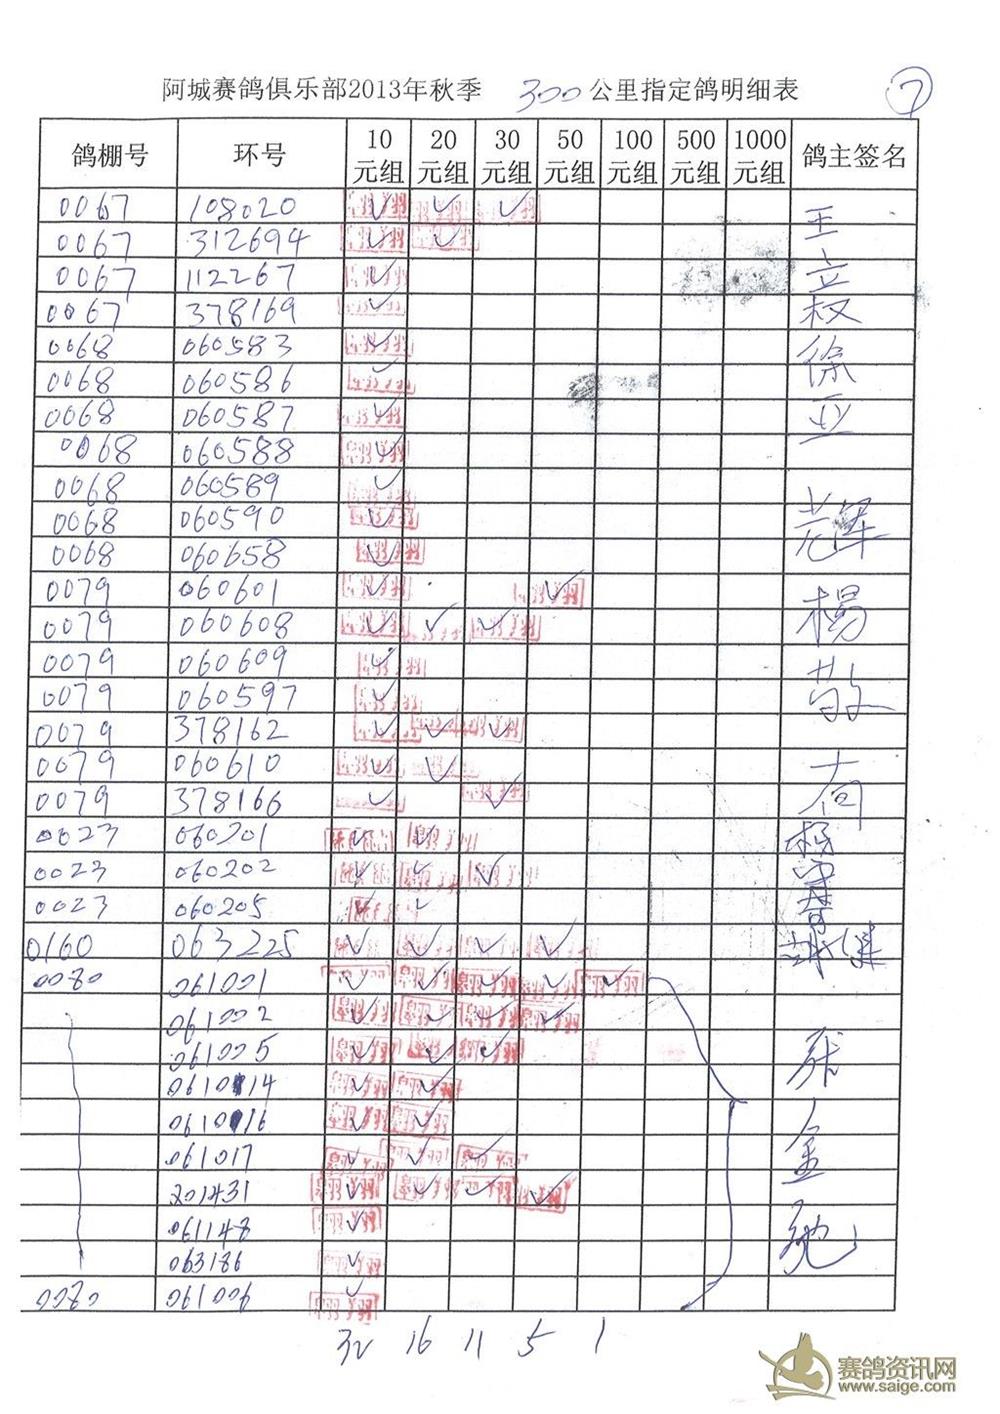 阿城赛鸽俱乐部2013年秋季 300公里指定鸽明细表 7
鸽棚号 环号 10元组 20元组 30元组 50元组 100元组 500元组 1000元组 鸽主签名
0067 108020 ✓ ✓ ✓ 王
0067 312694 ✓ ✓
0067 112267 ✓ 立
0067 378169 ✓ 权
0068 060583 ✓ 徐
0068 060586 ✓
0068 060587 ✓ 亚
0068 060588 ✓
0068 060589 ✓
0068 060590 ✓ 光辉
0068 060658 ✓
0079 060601 ✓ ✓ 杨
0079 060608 ✓ ✓ ✓
0079 060609 ✓
0079 060597 ✓ 敬
0079 378162 ✓ ✓ ✓
0079 060610 ✓ ✓
0079 378166 ✓ ✓
0023 060201 ✓ ✓ 杨
0023 060202 ✓ ✓ ✓
0023 060205 ✓ ✓
0160 063225 ✓ ✓ ✓ ✓
0080 061001 ✓ ✓ ✓ ✓ ✓
061002 ✓ ✓ ✓ ✓
061005 ✓ ✓ ✓ 张
061014 ✓ ✓
061016 ✓ ✓
061017 ✓ ✓ ✓ 金
201431 ✓ ✓ ✓ ✓
061148 ✓ 驰
063186 ✓
0080 061006 ✓
32 16 11 5 1
赛鸽资讯网
www.saige.com